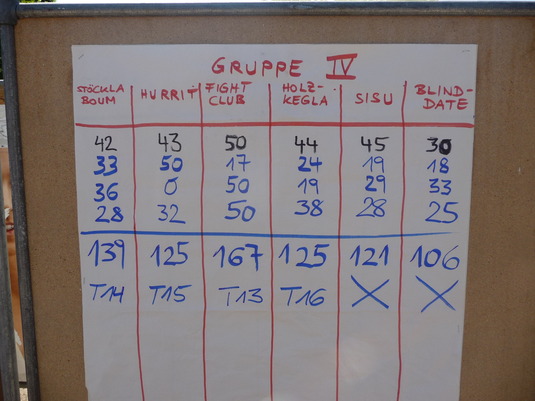 GRUPPE IV
STÖCKLA BOUM HURRIT FIGHT CLUB HOLZ-KEGLA SISU BLIND-DATE
42 43 50 44 45 30
33 50 17 24 19 18
36 0 50 19 29 33
28 32 50 38 28 25
139 125 167 125 121 106
T14 T15 T13 T16 X X